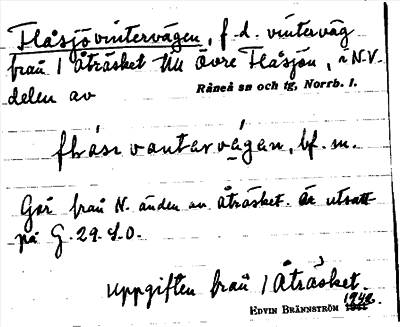 Flåsjövintervägen, f.d. vinterväg
från 1 Åträsket till Övre Flåsjön, i N.V.
delen av
Råneå sn och tg, Norrb. l.
vantervägen, bf. m.
Går från N. änden av Åträsket. Är utsatt
på G. 29. S.O.
Uppgiften från 1 Åträsket.
1948.
EDVIN BRÄNNSTRÖM